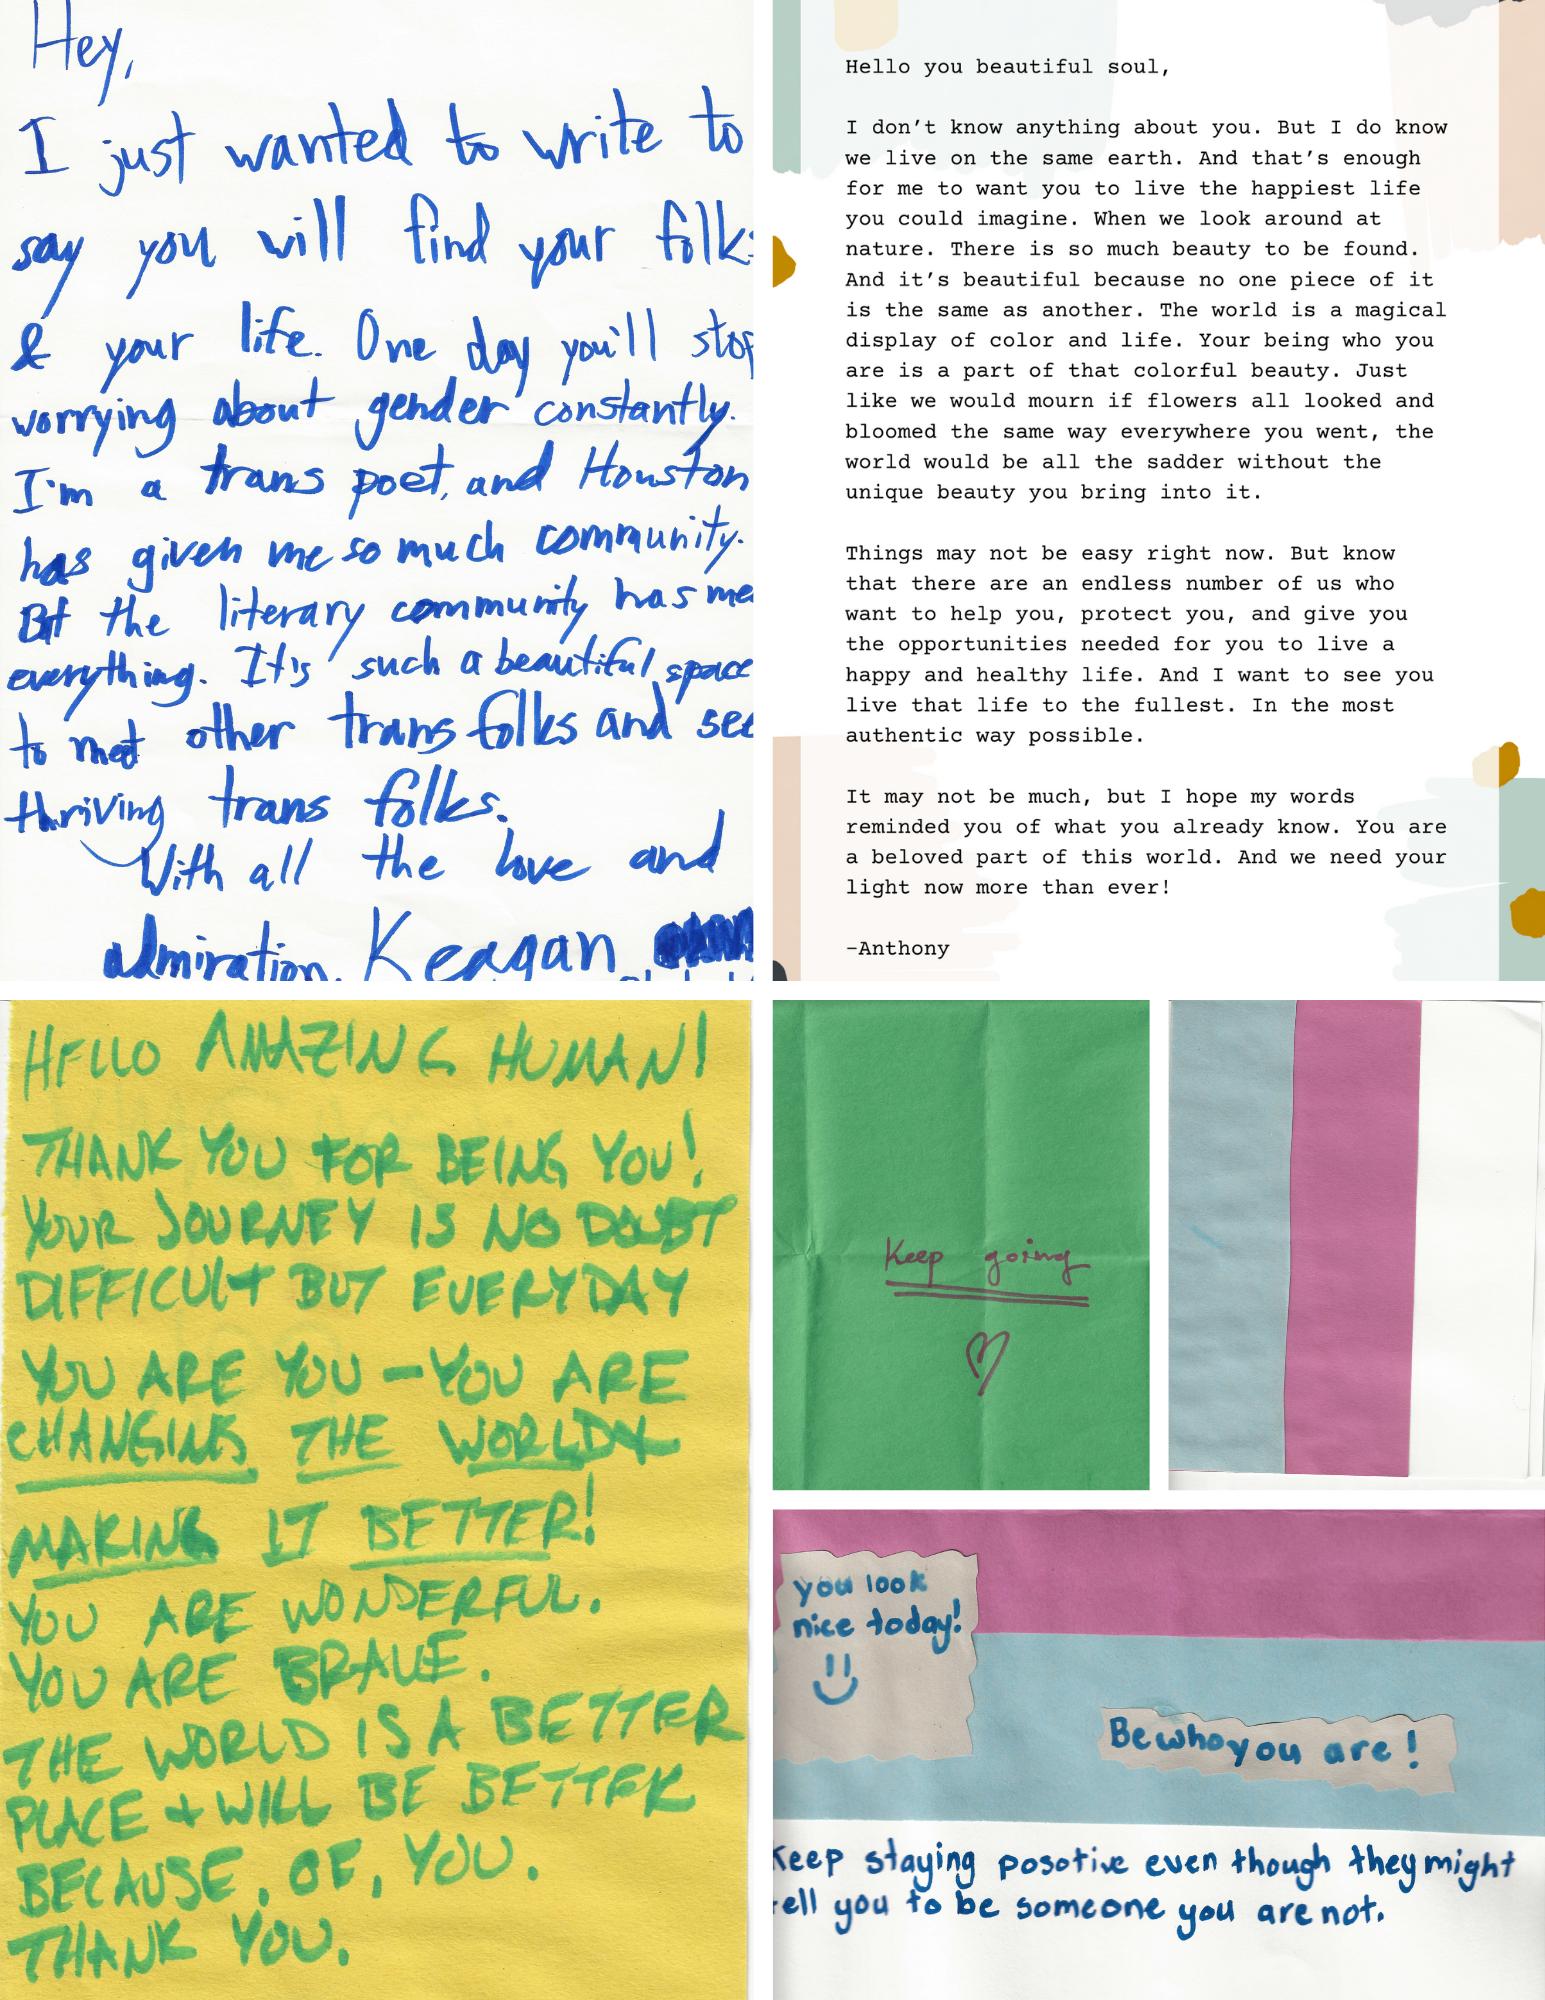 Hey,
I just wanted to write to
say you will find your folks
& your life. One day you'll stop
worrying about gender constantly.
I'm a trans poet, and Houston
has given me so much community.
But the literary community has me
everything. It's such a beautiful space
to met other trans folks and see
thriving trans folks.
With all the love and
admiration, Keagan
Hello you beautiful soul,
I don't know anything about you. But I do know
we live on the same earth. And that's enough
for me to want you to live the happiest life
you could imagine. When we look around at
nature. There is so much beauty to be found.
And it's beautiful because no one piece of it
is the same as another. The world is a magical
display of color and life. Your being who you
are is a part of that colorful beauty. Just
like we would mourn if flowers all looked and
bloomed the same way everywhere you went, the
world would be all the sadder without the
unique beauty you bring into it.
Things may not be easy right now. But know
that there are an endless number of us who
want to help you, protect you, and give you
the opportunities needed for you to live a
happy and healthy life. And I want to see you
live that life to the fullest. In the most
authentic way possible.
It may not be much, but I hope my words
reminded you of what you already know. You are
a beloved part of this world. And we need your
light now more than ever!
–Anthony
HELLO AMAZING HUMAN!
THANK YOU FOR BEING YOU!
YOUR JOURNEY IS NO DOUBT
DIFFICULT BUT EVERYDAY
YOU ARE YOU – YOU ARE
CHANGING THE WORLD &
MAKING IT BETTER!
YOU ARE WONDERFUL.
YOU ARE BRAVE.
THE WORLD IS A BETTER
PLACE + WILL BE BETTER
BECAUSE, OF, YOU.
THANK YOU.
Keep going
you look
nice today!
Be who you are!
Keep staying posotive even though they might
tell you to be someone you are not.